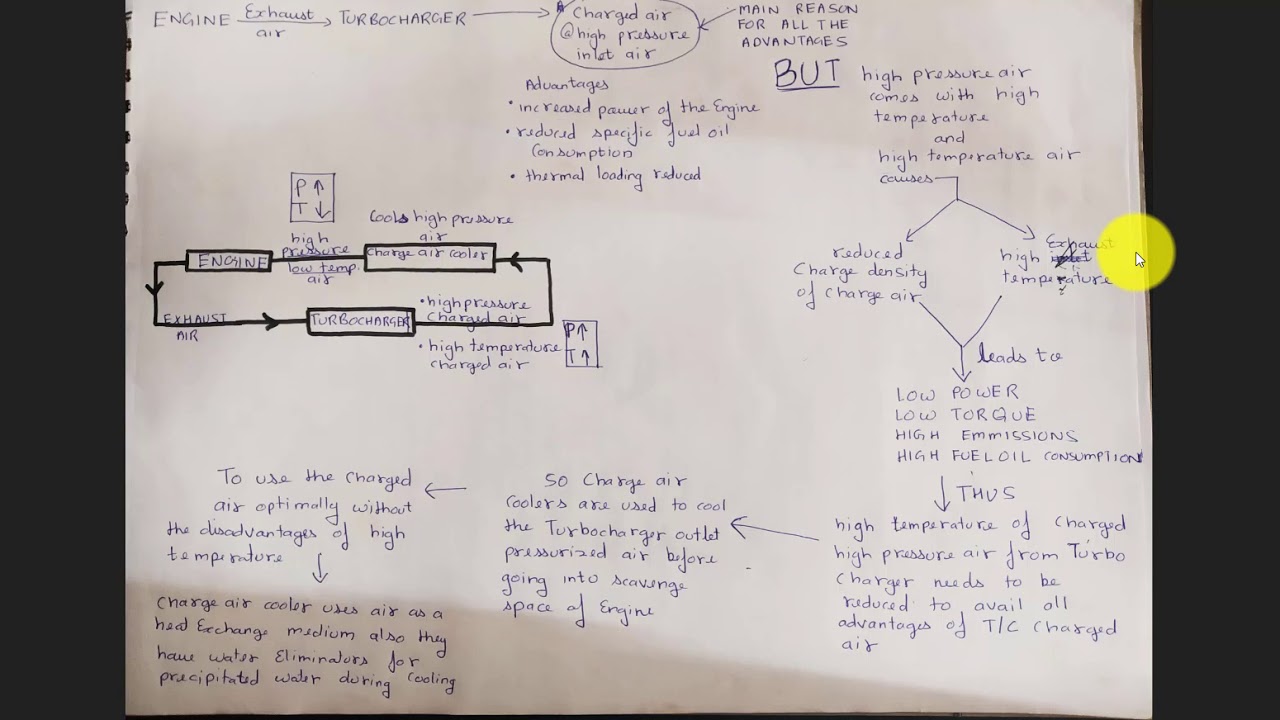 ENGINE Exhaust air TURBOCHARGER
Charged air
@high pressure
inlet air
MAIN REASON
FOR ALL THE
ADVANTAGES
Advantages
• increased power of the Engine
• reduced specific fuel oil
Consumption
• thermal loading reduced
BUT high pressure air
comes with high
temperature
and
high temperature air
causes
reduced
Charge density
of charge air
high Exhaust
temperature
leads to
LOW POWER
LOW TORQUE
HIGH EMMISSIONS
HIGH FUEL OIL CONSUMPTION
THUS
high temperature of charged
high pressure air from Turbo
Charger needs to be
reduced to avail all
advantages of T/C charged
air
P ↑
T ↓
Cools high pressure
air
charge air cooler
high
pressure
low temp.
air
ENGINE
EXHAUST
AIR
TURBOCHARGER
• high pressure
charged air
• high temperature
charged air
P↑
T↑
SO Charge air
Coolers are used to cool
the Turbocharger outlet
pressurized air before
going into scavenge
space of Engine
To use the charged
air optimally without
the disadvantages of high
temperature
Charge air cooler uses air as a
heat Exchange medium also they
have water Eliminators for
precipitated water during Cooling